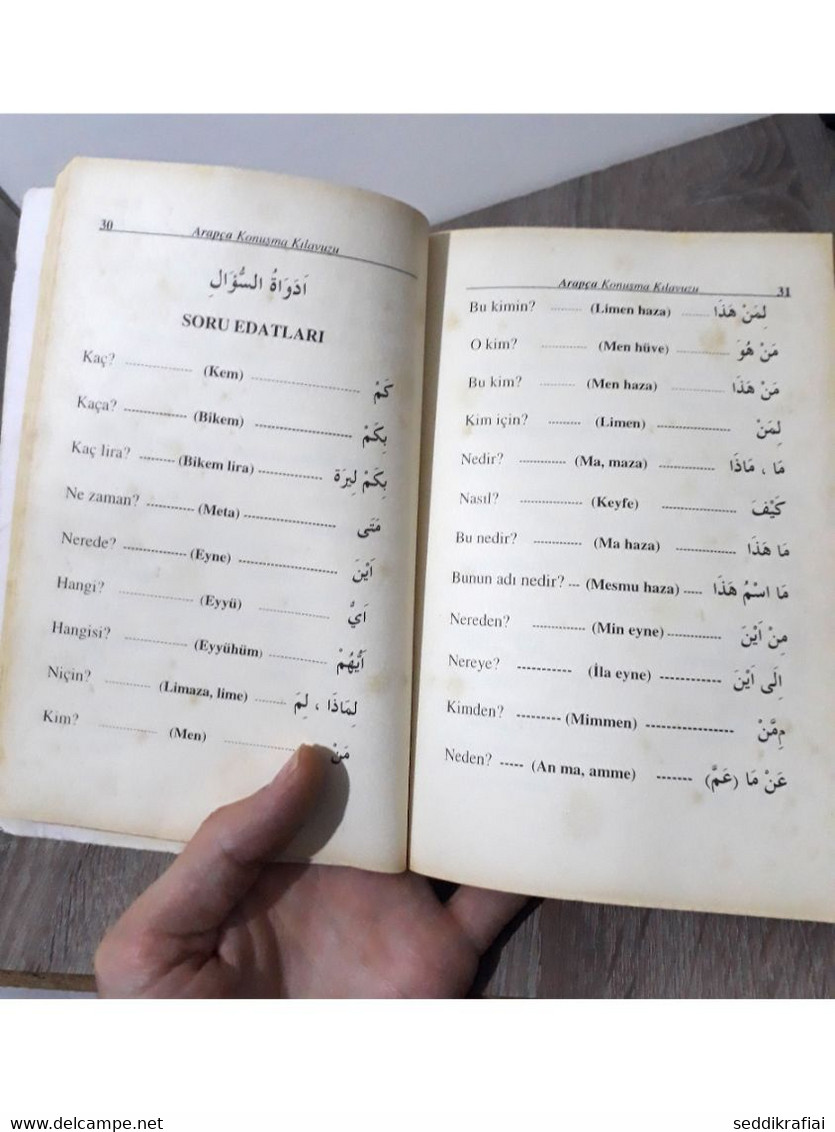 30
Arapça Konuşma Kılavuzu
اَدَوَاةُ السُّؤَالِ
SORU EDATLARI
Kaç? ---------------- (Kem) ---------------- كَمْ
Kaça? ---------------- (Bikem) ---------------- بِكَمْ
Kaç lira? --------- (Bikem lira) --------------- بِكَمْ لِيرَة
Ne zaman? ----------- (Meta) ---------------- مَتَى
Nerede? ---------------- (Eyne) ---------------- اَيْنَ
Hangi? ---------------- (Eyyü) ---------------- اَيُّ
Hangisi? --------------- (Eyyühüm) --------------- اَيُّهُمْ
Niçin? --------------- (Limaza, lime) -------- لِمَاذَا ، لِمَ
Kim? --------------- (Men) ---------------- مَنْ
Arapça Konuşma Kılavuzu
31
Bu kimin? --------- (Limen haza) -------- لِمَنْ هَذَا
O kim? ------------- (Men hüve) -------------- مَنْ هُوَ
Bu kim? ------------ (Men haza) -------------- مَنْ هَذَا
Kim için? --------- (Limen) ------------------- لِمَنْ
Nedir? ------------ (Ma, maza) --------------- مَا ، مَاذَا
Nasıl? ------------ (Keyfe) ------------------- كَيْفَ
Bu nedir? ------------- (Ma haza) --------------- مَا هَذَا
Bunun adı nedir? -- (Mesmu haza) ----- مَا اسْمُ هَذَا
Nereden? -------------- (Min eyne) -------------- مِنْ اَيْنَ
Nereye? -------------- (İla eyne) -------------- اِلَى اَيْنَ
Kimden? --------- (Mimmen) ------------------- مِمَّنْ
Neden? ----- (An ma, amme) ------- عَنْ مَا (عَمَّ)
www.delcampe.net
seddikrafiai